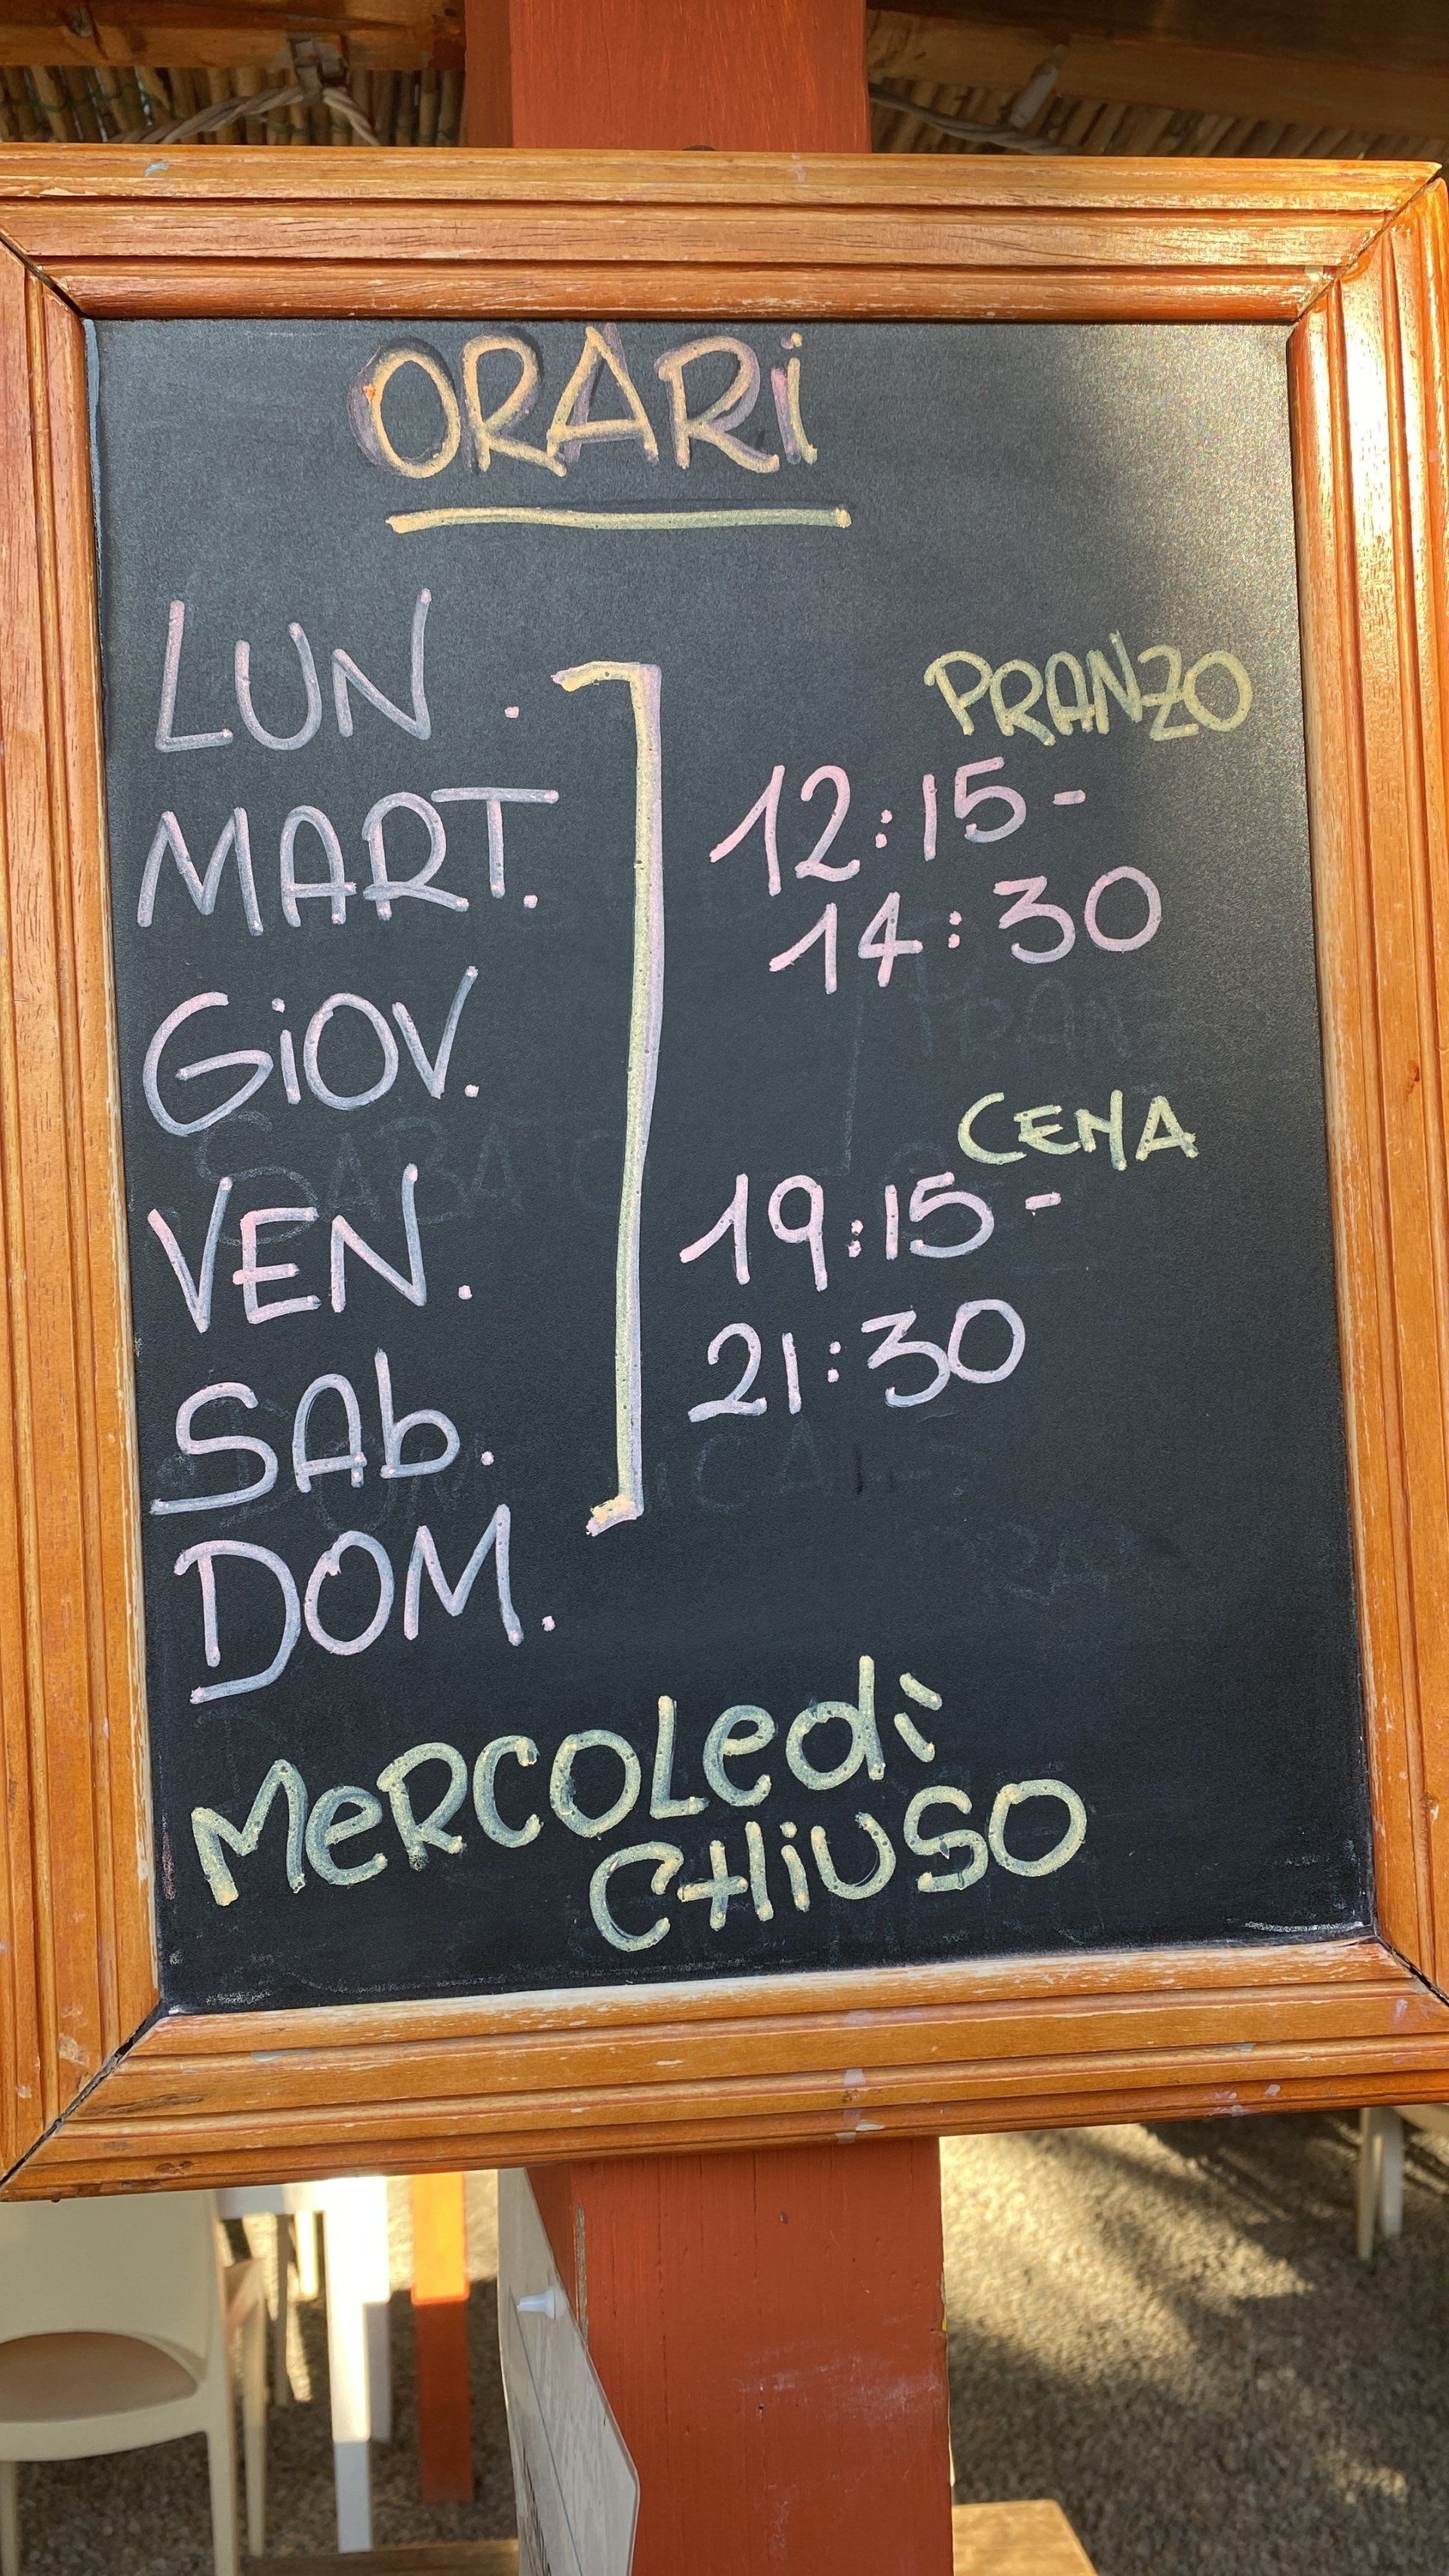 ORARi
LUN.
MART.
GiOV.
VEN.
SAb.
DOM.
PRANZO
12:15-
14:30
CENA
19:15-
21:30
MeRCOLedì
CHiUSO